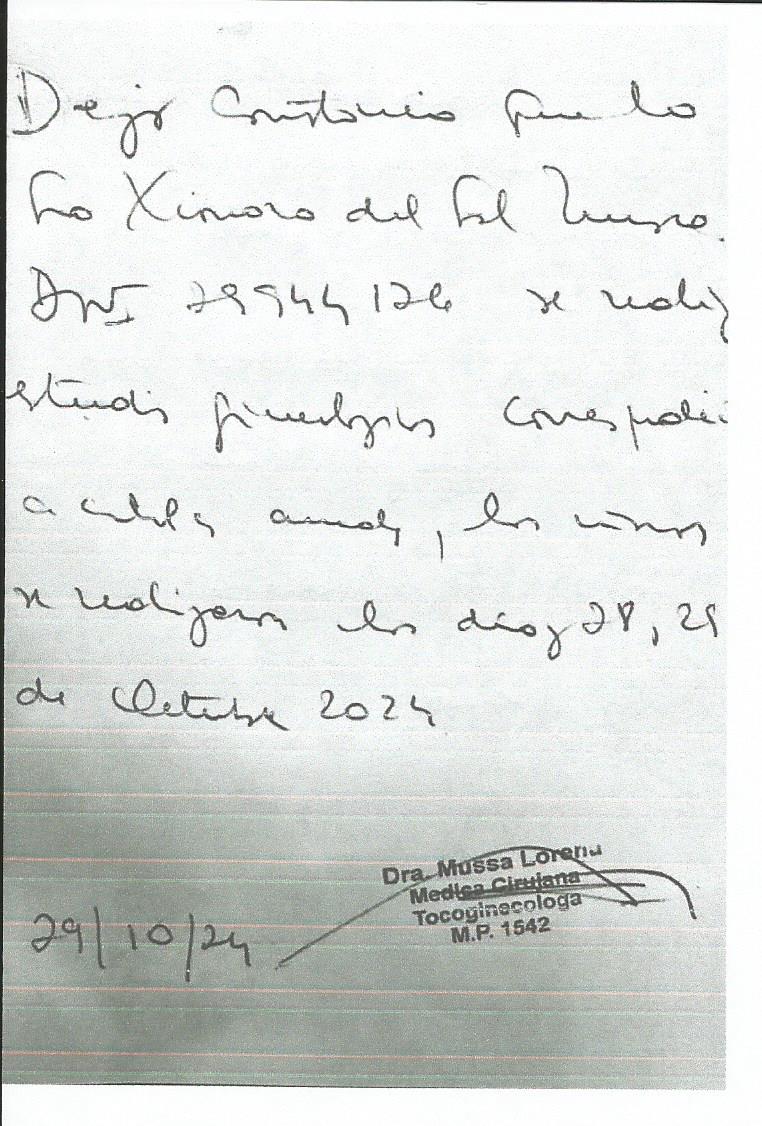 Dejo Constancia que la
Sra Ximora del Sol
DNI 29944126 se realiz
estudios ginecologicos correspondi
a control anual, los mismos
se realizaron los dias 28, 29
de Octubre 2024
29/10/24
Dra. Mussa Lorena
Medica Cirujana
Tocoginecologa
M.P. 1542